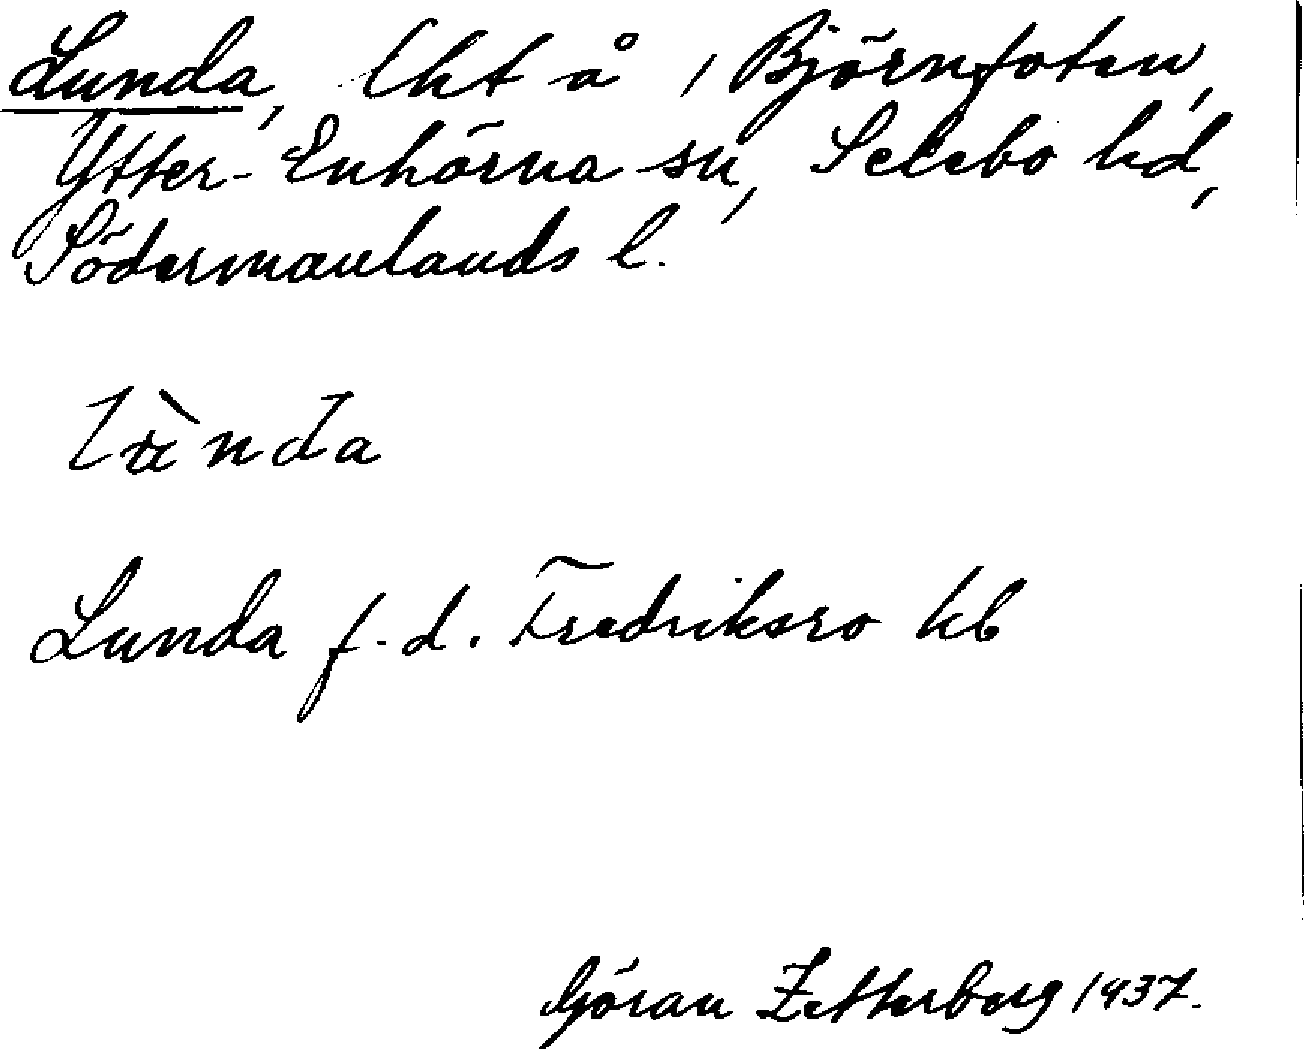 Lunda, lht å 1 Björnfoten,
Ytter-Enhörna sn, Selebo hd,
Södermanlands l.
lùnda
Lunda f.d. Fredriksro kb
Göran Zetterberg 1937.